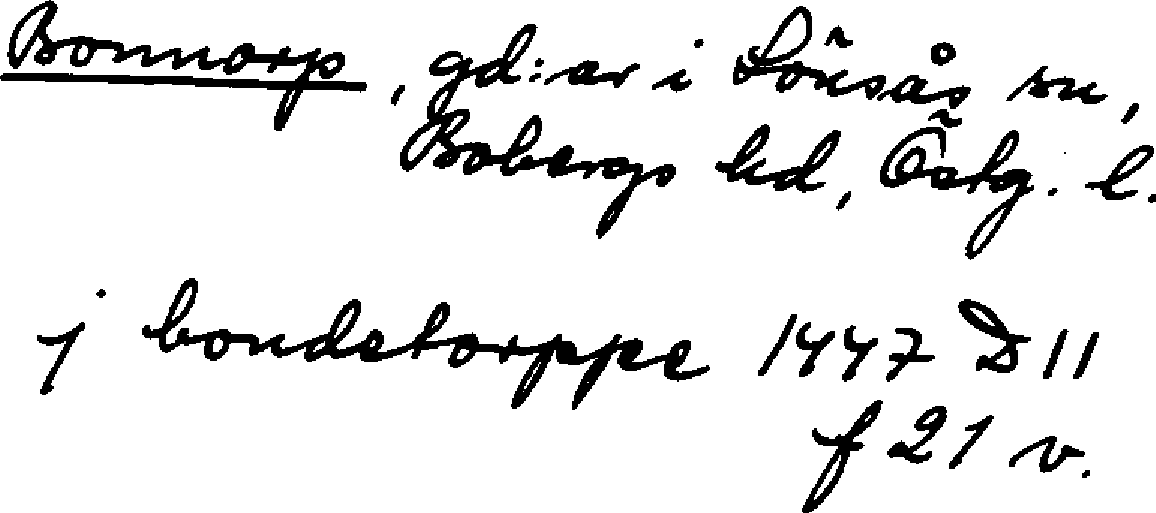 Bonnorp, gd:ar i Lönsås sn,
Bobergs hd, Östg. l.
j bondetorppe 1447 D 11
f 21 v.